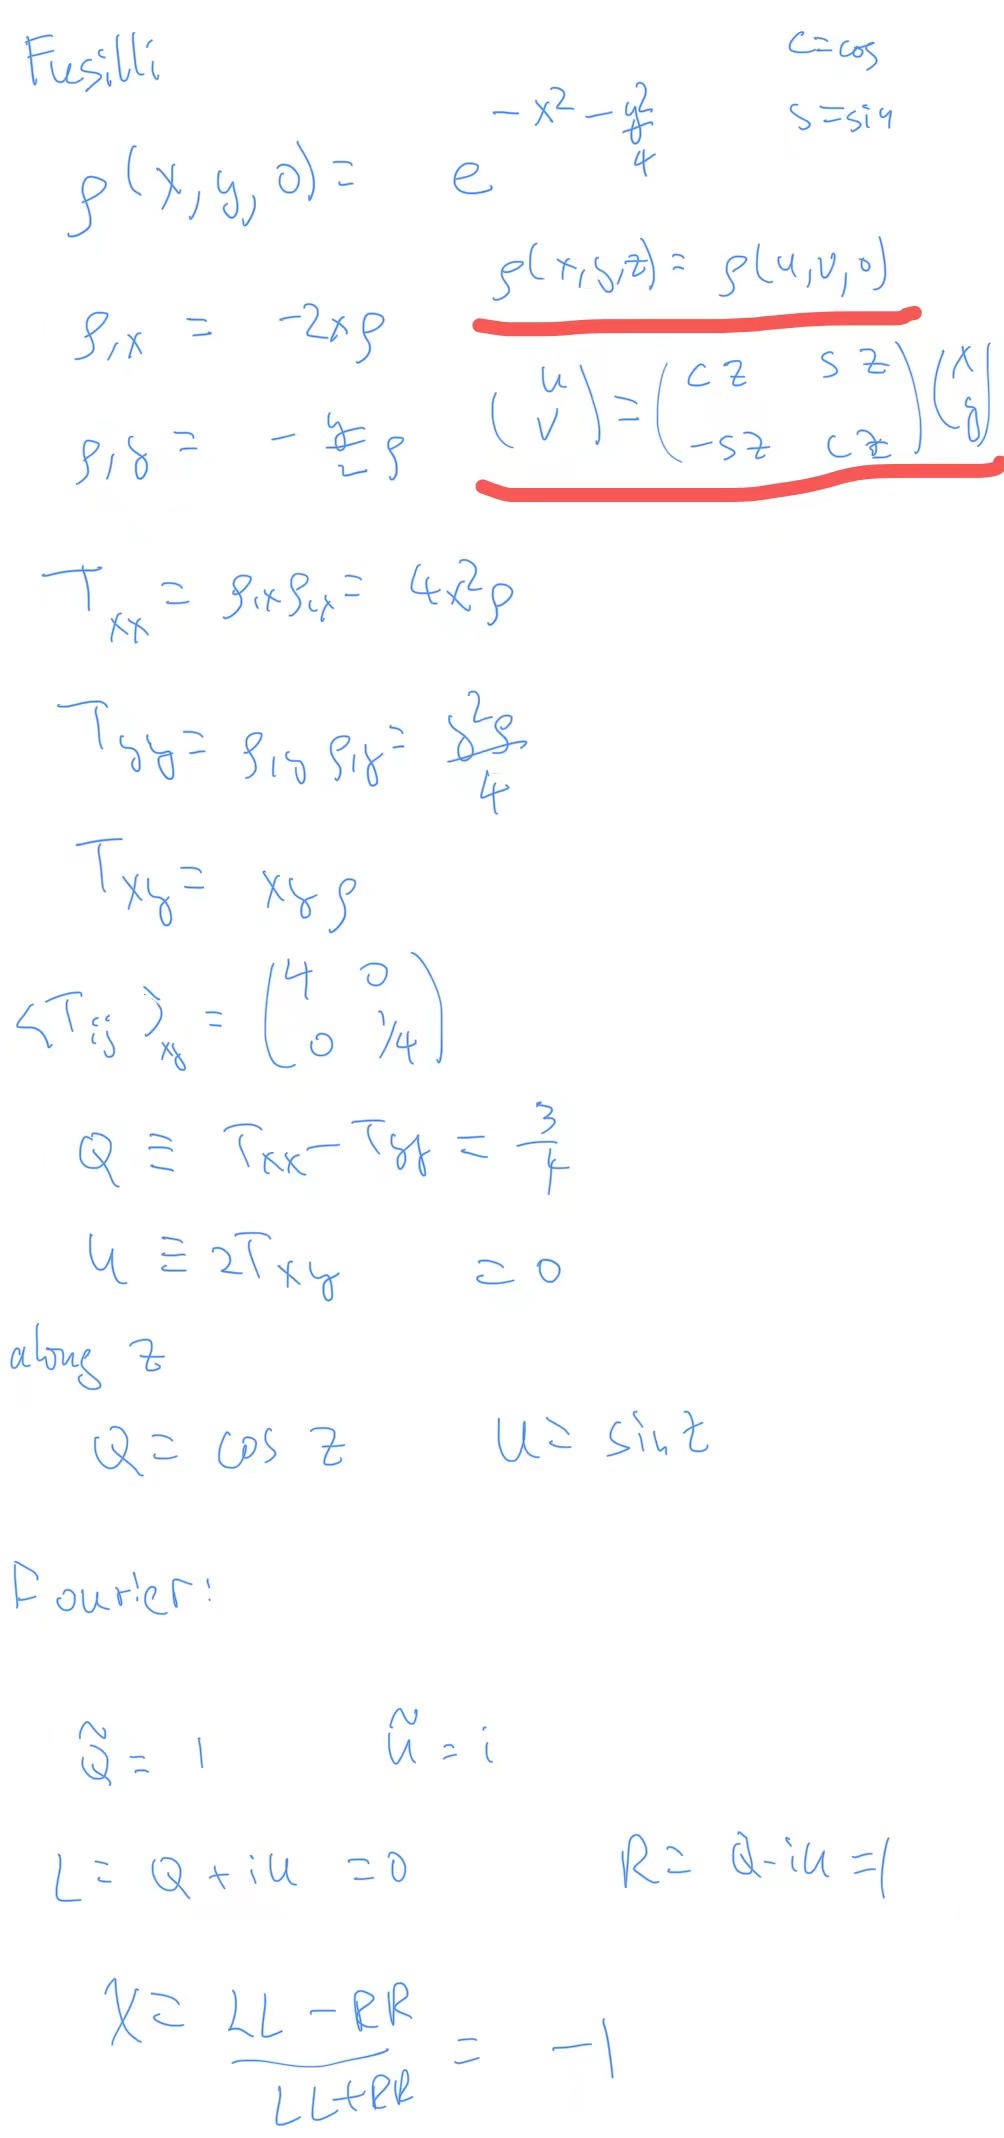 Fusilli
c=cos
s=sin
ρ(x,y,0)= e^{-x²-y²/4}
ρ(x,y,z)= ρ(u,v,0)
ρ,x = -2xρ
(u v) = (cz sz -sz cz)(x y)
ρ,y = -y/2 ρ
Txx = ρ,xρ,x= 4x²ρ
Tyy= ρ,y ρ,y= y²ρ/4
Txy= xyρ
<Tij>xy = (4 0 0 1/4)
Q ≡ Txx-Tyy = 3/4
U ≡ 2Txy = 0
along z
Q= cos z U= sin z
Fourier:
Q̃= 1 Ũ=i
L= Q+iU =0 R= Q-iU=1
χ= LL-RR/LL+RR = -1